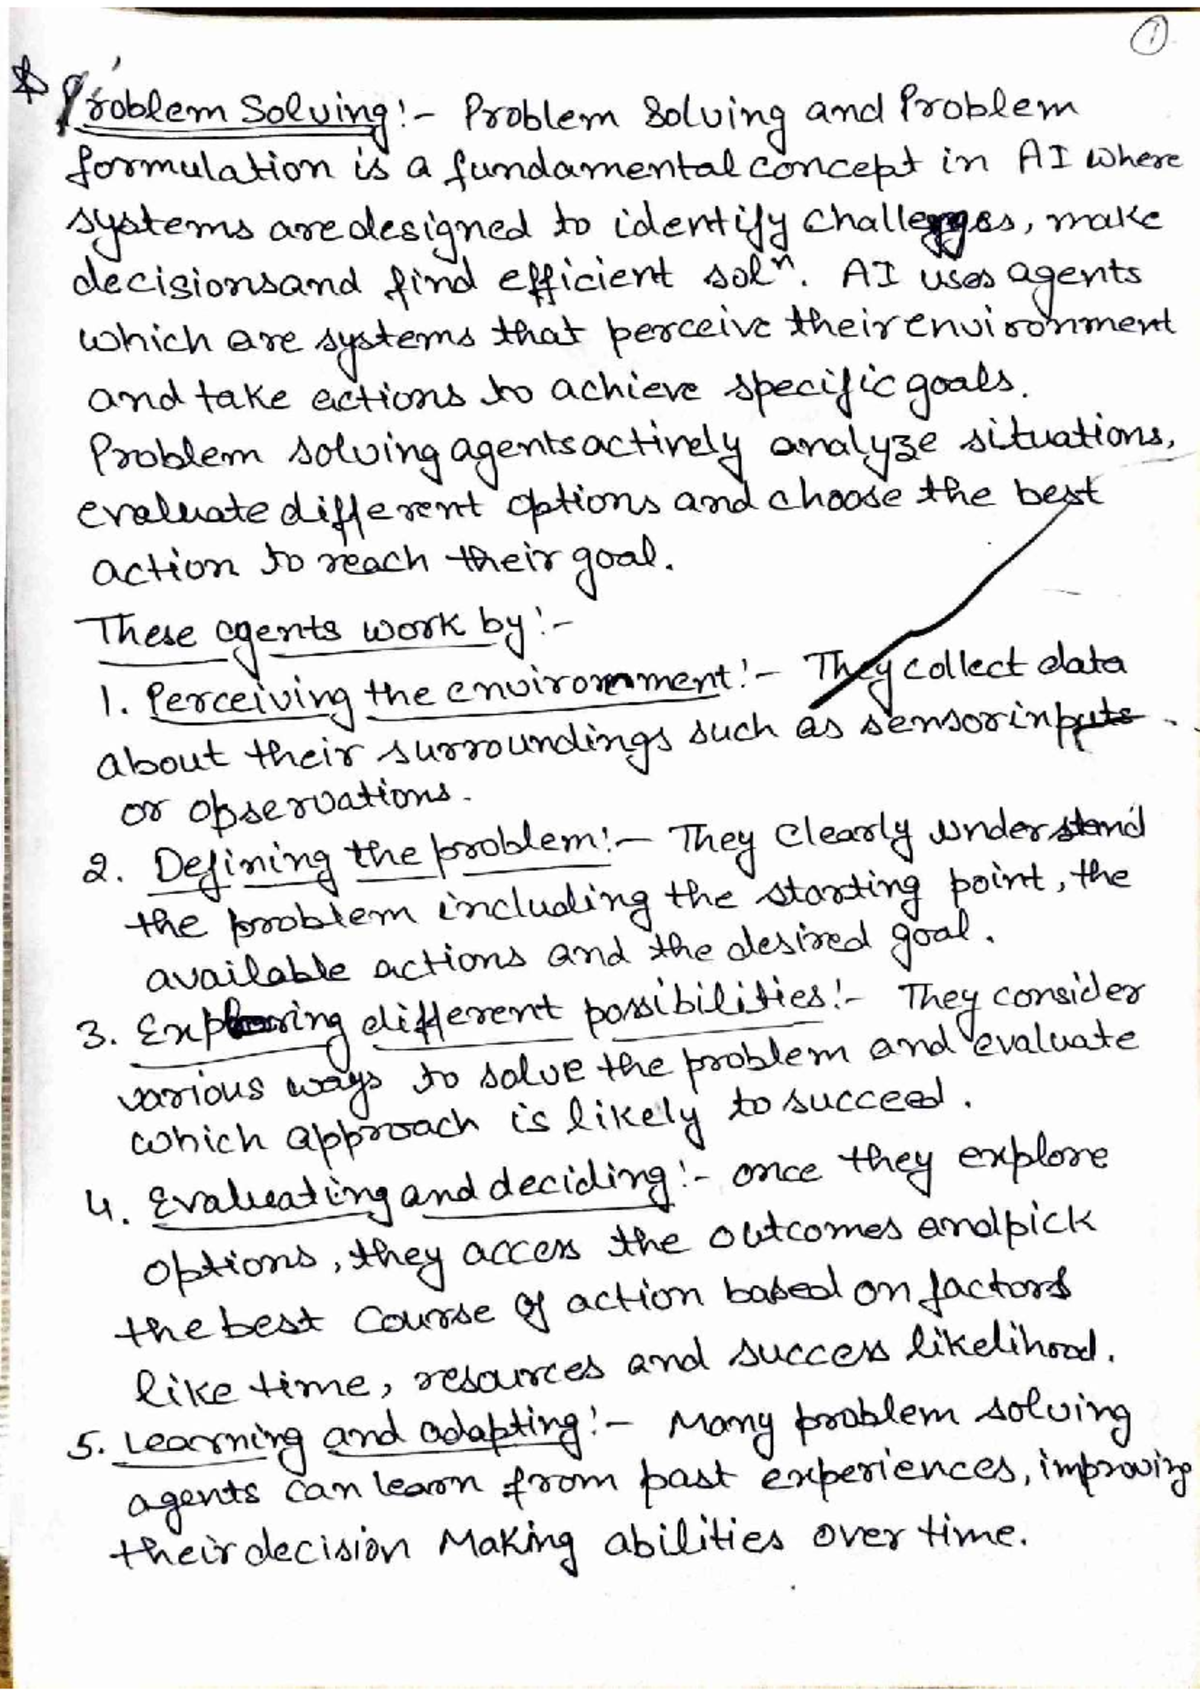 1
Problem Solving:- Problem Solving and Problem
formulation is a fundamental concept in AI where
systems are designed to identify challenges, make
decisions and find efficient solⁿ. AI uses agents
which are systems that perceive their environment
and take actions to achieve specific goals.
Problem solving agents actively analyze situations,
evaluate different options and choose the best
action to reach their goal.
These agents work by:-
1. Perceiving the environment:- They collect data
about their surroundings such as sensor inputs
or observations.
2. Defining the problem:- They clearly understand
the problem including the starting point, the
available actions and the desired goal.
3. Exploring different possibilities:- They consider
various ways to solve the problem and evaluate
which approach is likely to succeed.
4. Evaluating and deciding:- once they explore
options, they access the outcomes and pick
the best course of action based on factors
like time, resources and success likelihood.
5. Learning and adapting:- Many problem solving
agents can learn from past experiences, improving
their decision Making abilities over time.